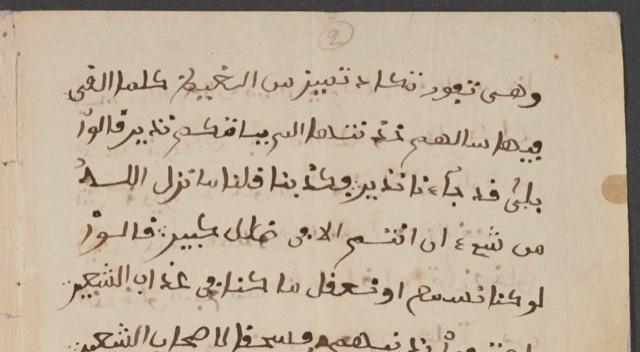 2
وهي تفور تكاد تميز من الغيظ كلما القى
فيها سالهم خزنتها الم ياتكم نذير قالوا
بلى قد جاءنا نذير فكذبنا قلنا ما نزل الله
من شيء ان انتم الا في ضلل كبير قالوا
لو كنا نسمع او نعقل ما كنا في عذاب الشعير
فسحقا لاصحاب الشعير